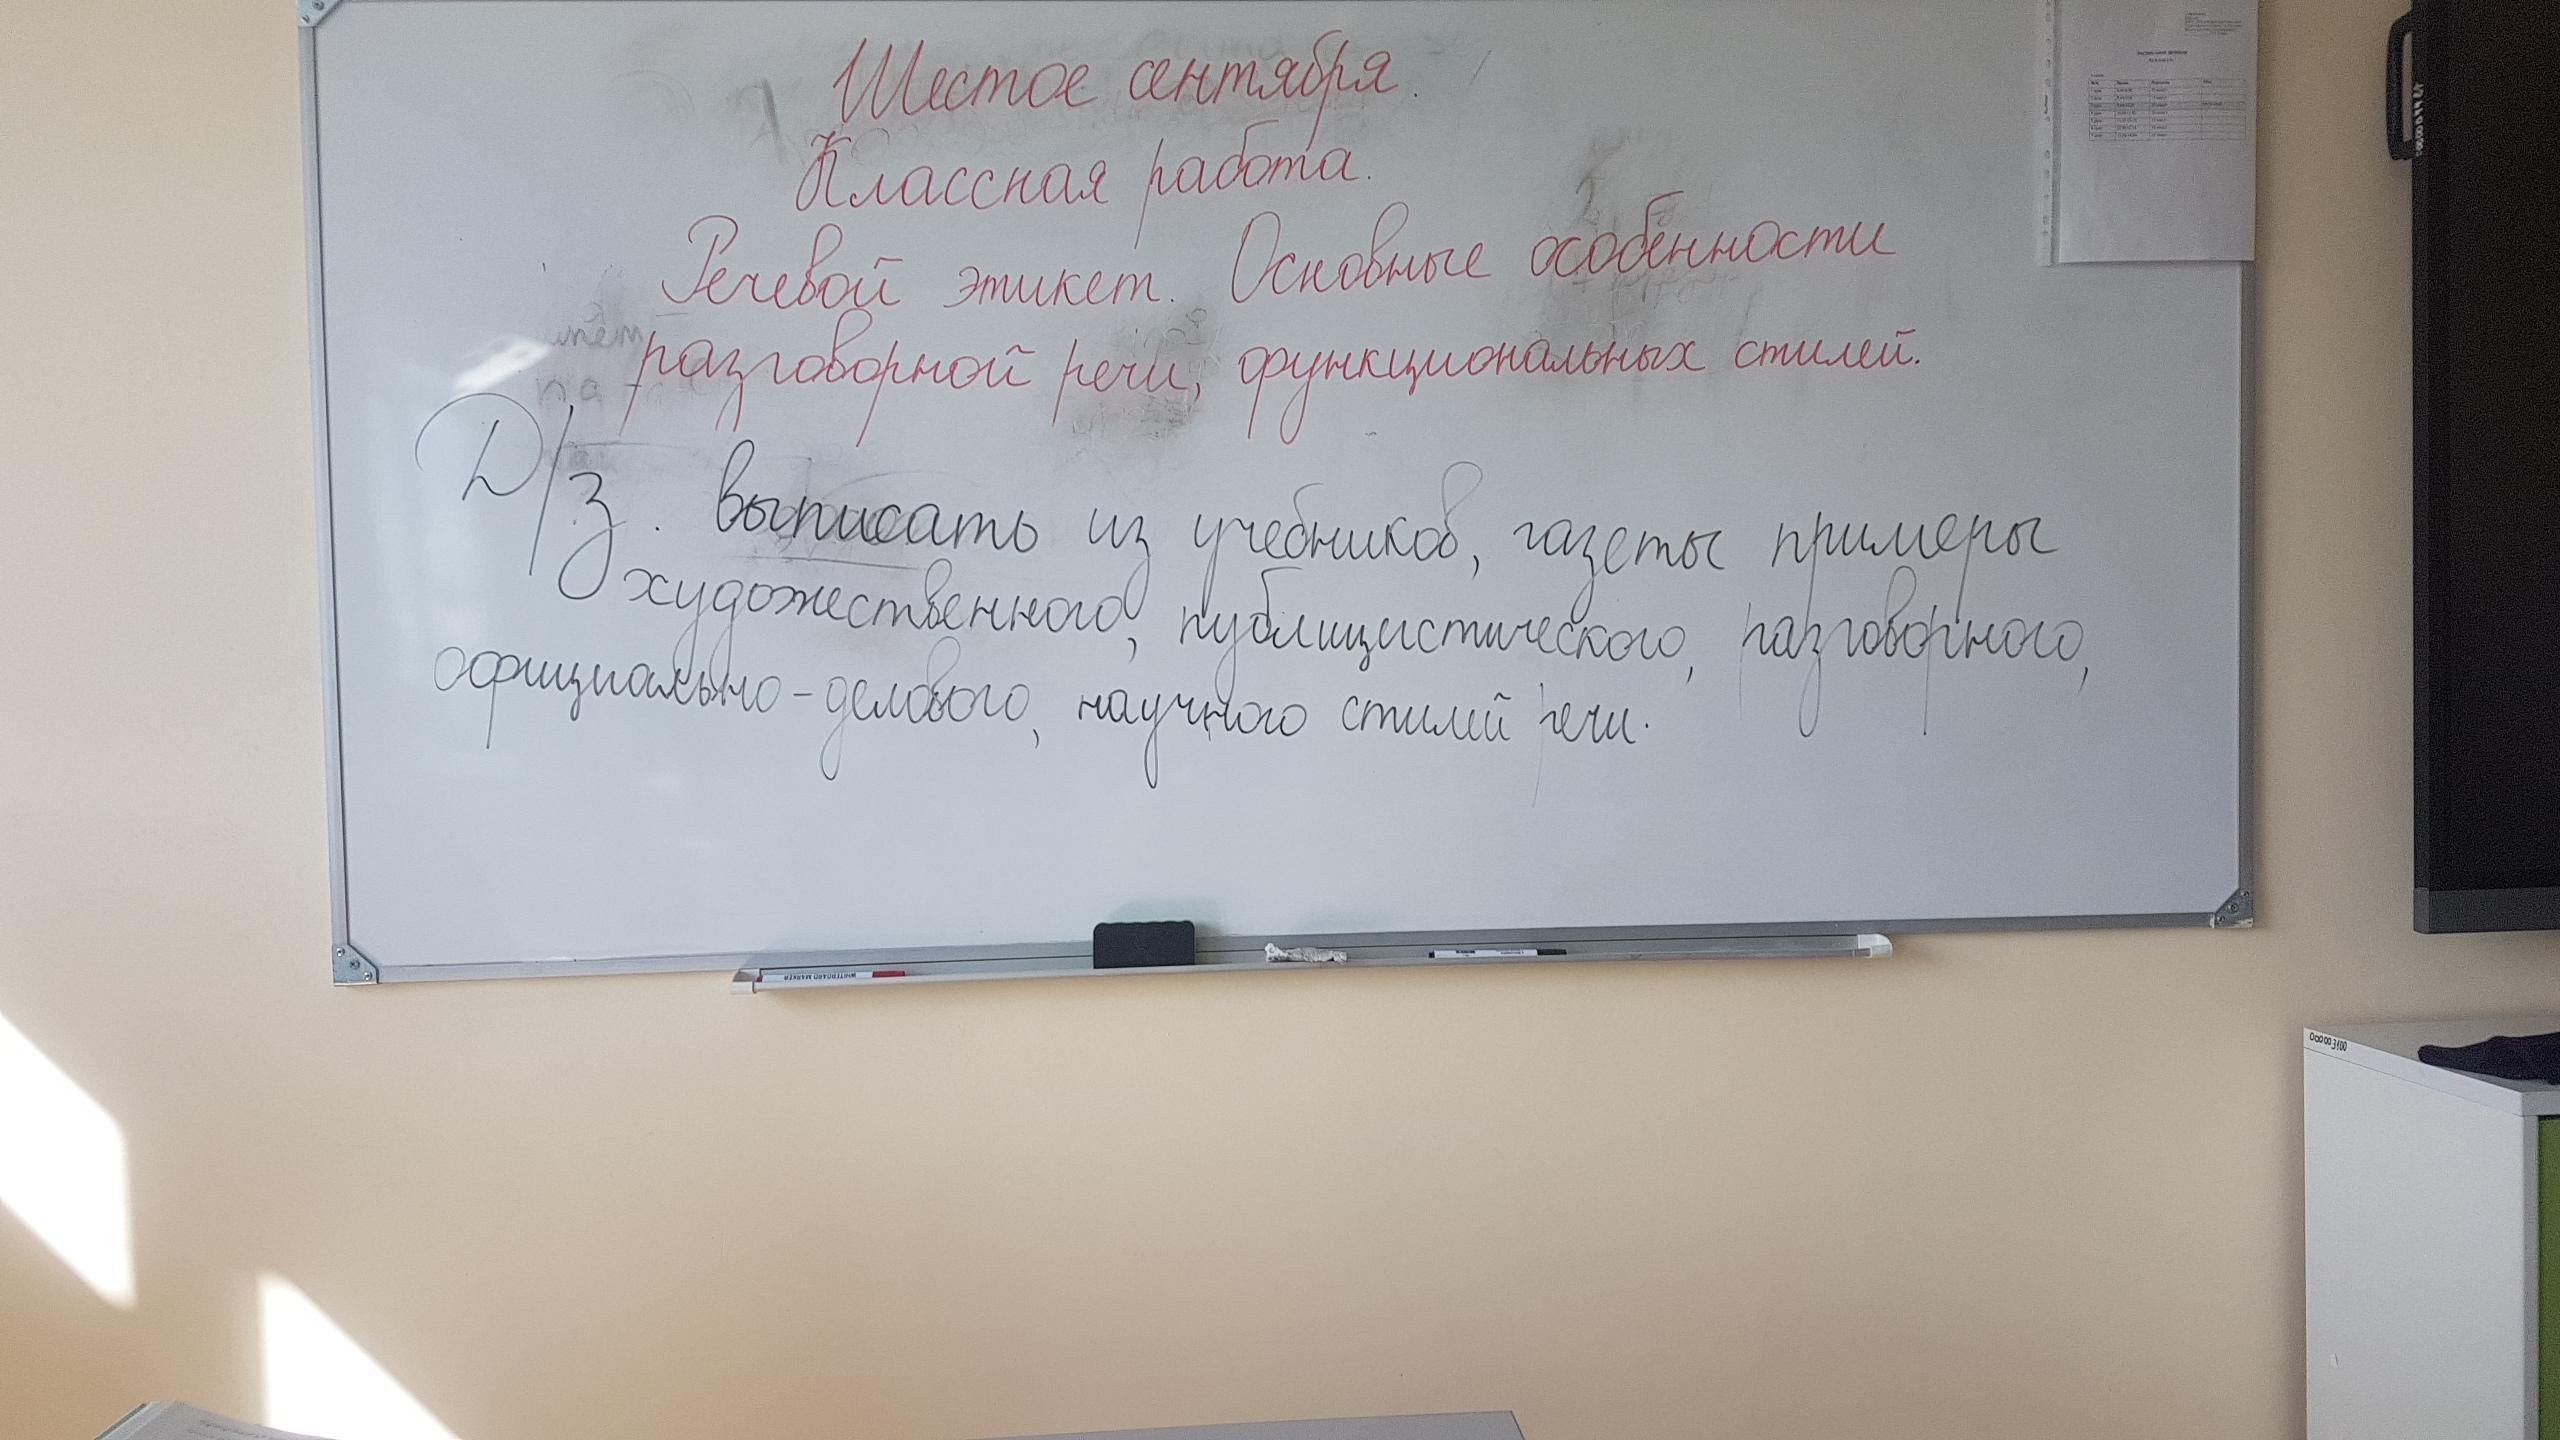 Шестое сентября.
Классная работа.
Речевой этикет. Основные особенности
разговорной речи, функциональных стилей.
Д/з. выписать из учебников, газеты примеры
художественного, публицистического, разговорного,
официально-делового, научного стилей речи.
WHITEBOARD MARKER
00003100